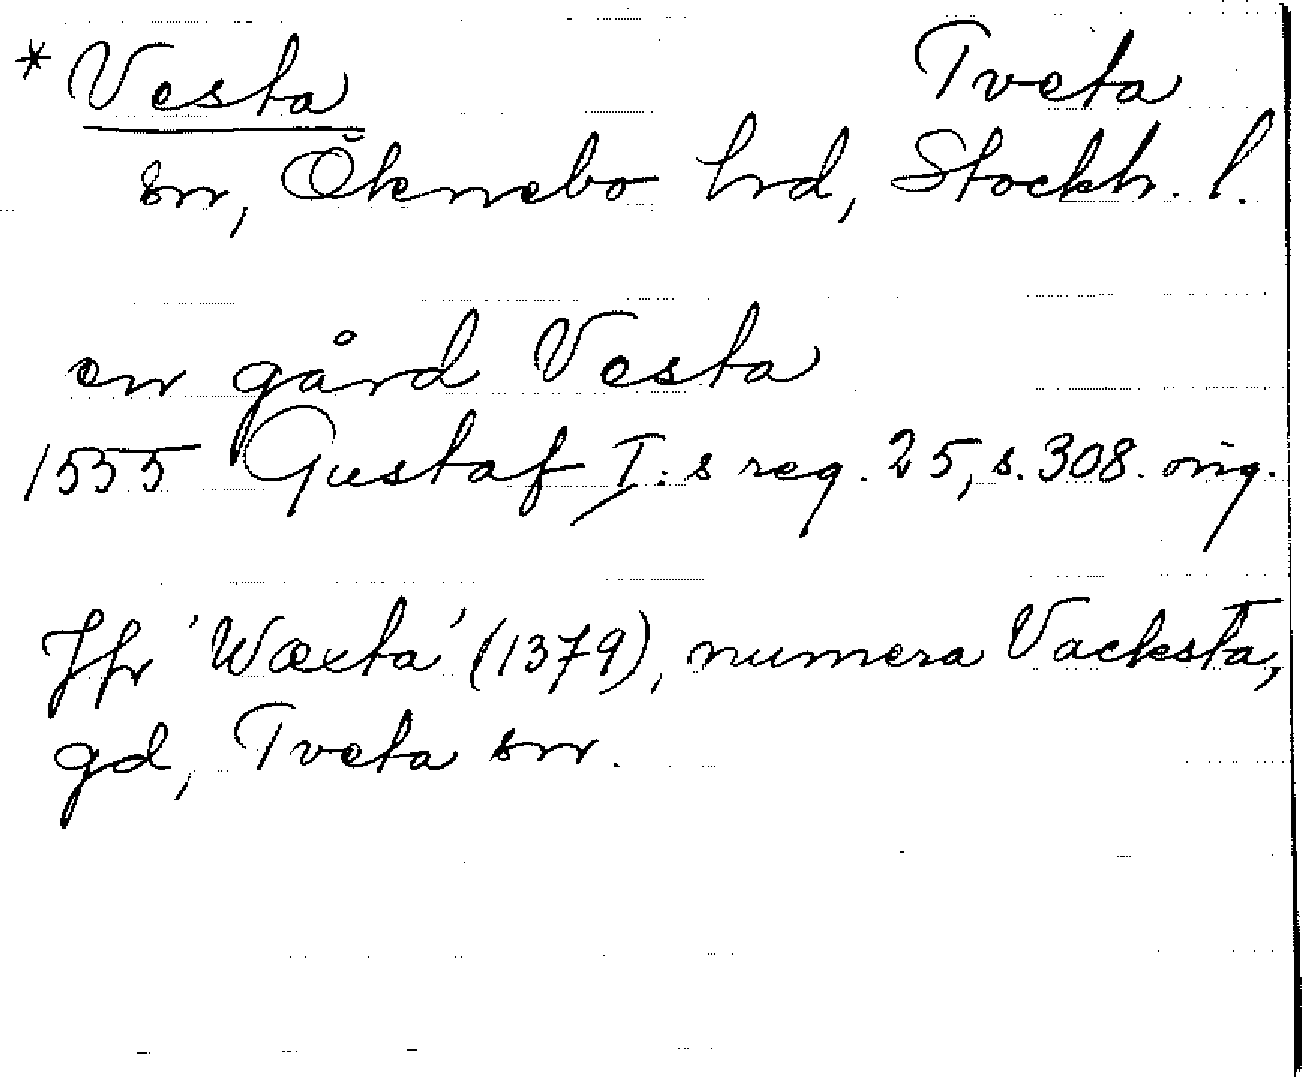 * Vesta Tveta
sn, Öknebo hrd, Stockh. l.
en gård Vesta
1555 Gustaf I:s reg. 25, s. 308. orig.
Jfr 'Wæxta' (1379), numera Vacksta,
gd, Tveta sn.